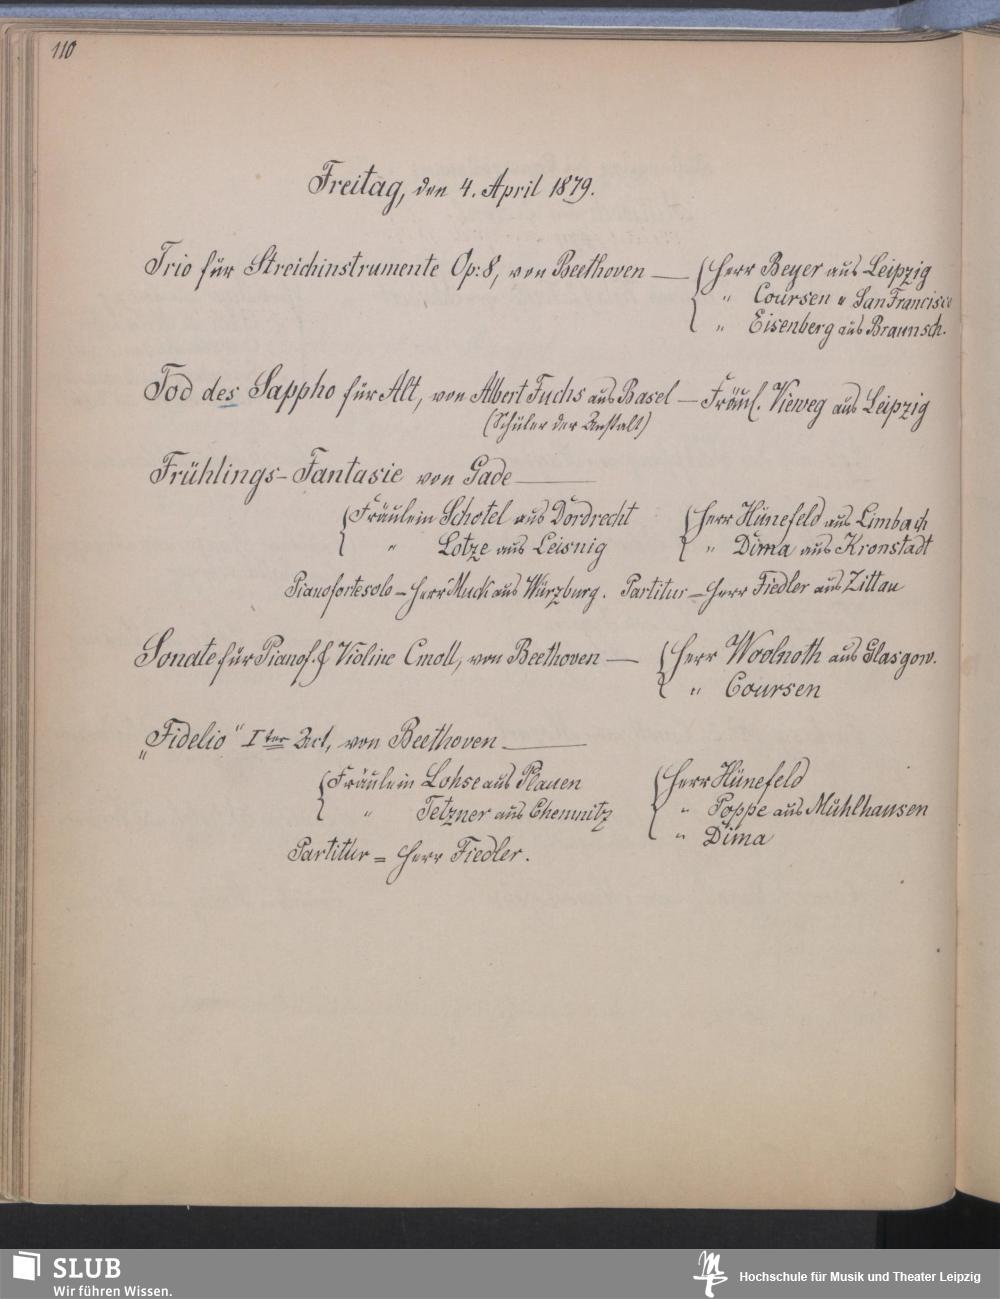 110
Freitag, den 4. April 1879.
Trio für Streichinstrumente Op: 8, von Beethoven — Herr Beyer aus Leipzig
" Coursen " San Francisco
" Eisenberg aus Braunsch.
Tod des Sappho für Alt, von Albert Fuchs aus Basel — Fräul. Vieweg aus Leipzig
(Schüler der Anstalt)
Frühlings-Fantasie von Gade —
Fräulein Schotel aus Dordrecht Herr Hünefeld aus Limbach
" Lotze aus Leisnig " Dima aus Kronstadt
Pianofortesolo – Herr Muck aus Würzburg. Partitur = Herr Fiedler aus Zittau
Sonate für Pianof. & Violine Cmoll, von Beethoven — Herr Woolnoth aus Glasgow.
" Coursen
„Fidelio“ Iter Act, von Beethoven —
Fräulein Lohse aus Plauen Herr Hünefeld
" Tetzner aus Chemnitz " Poppe aus Mühlhausen
" Dima
Partitur = Herr Fiedler.
SLUB
Wir führen Wissen.
Hochschule für Musik und Theater Leipzig